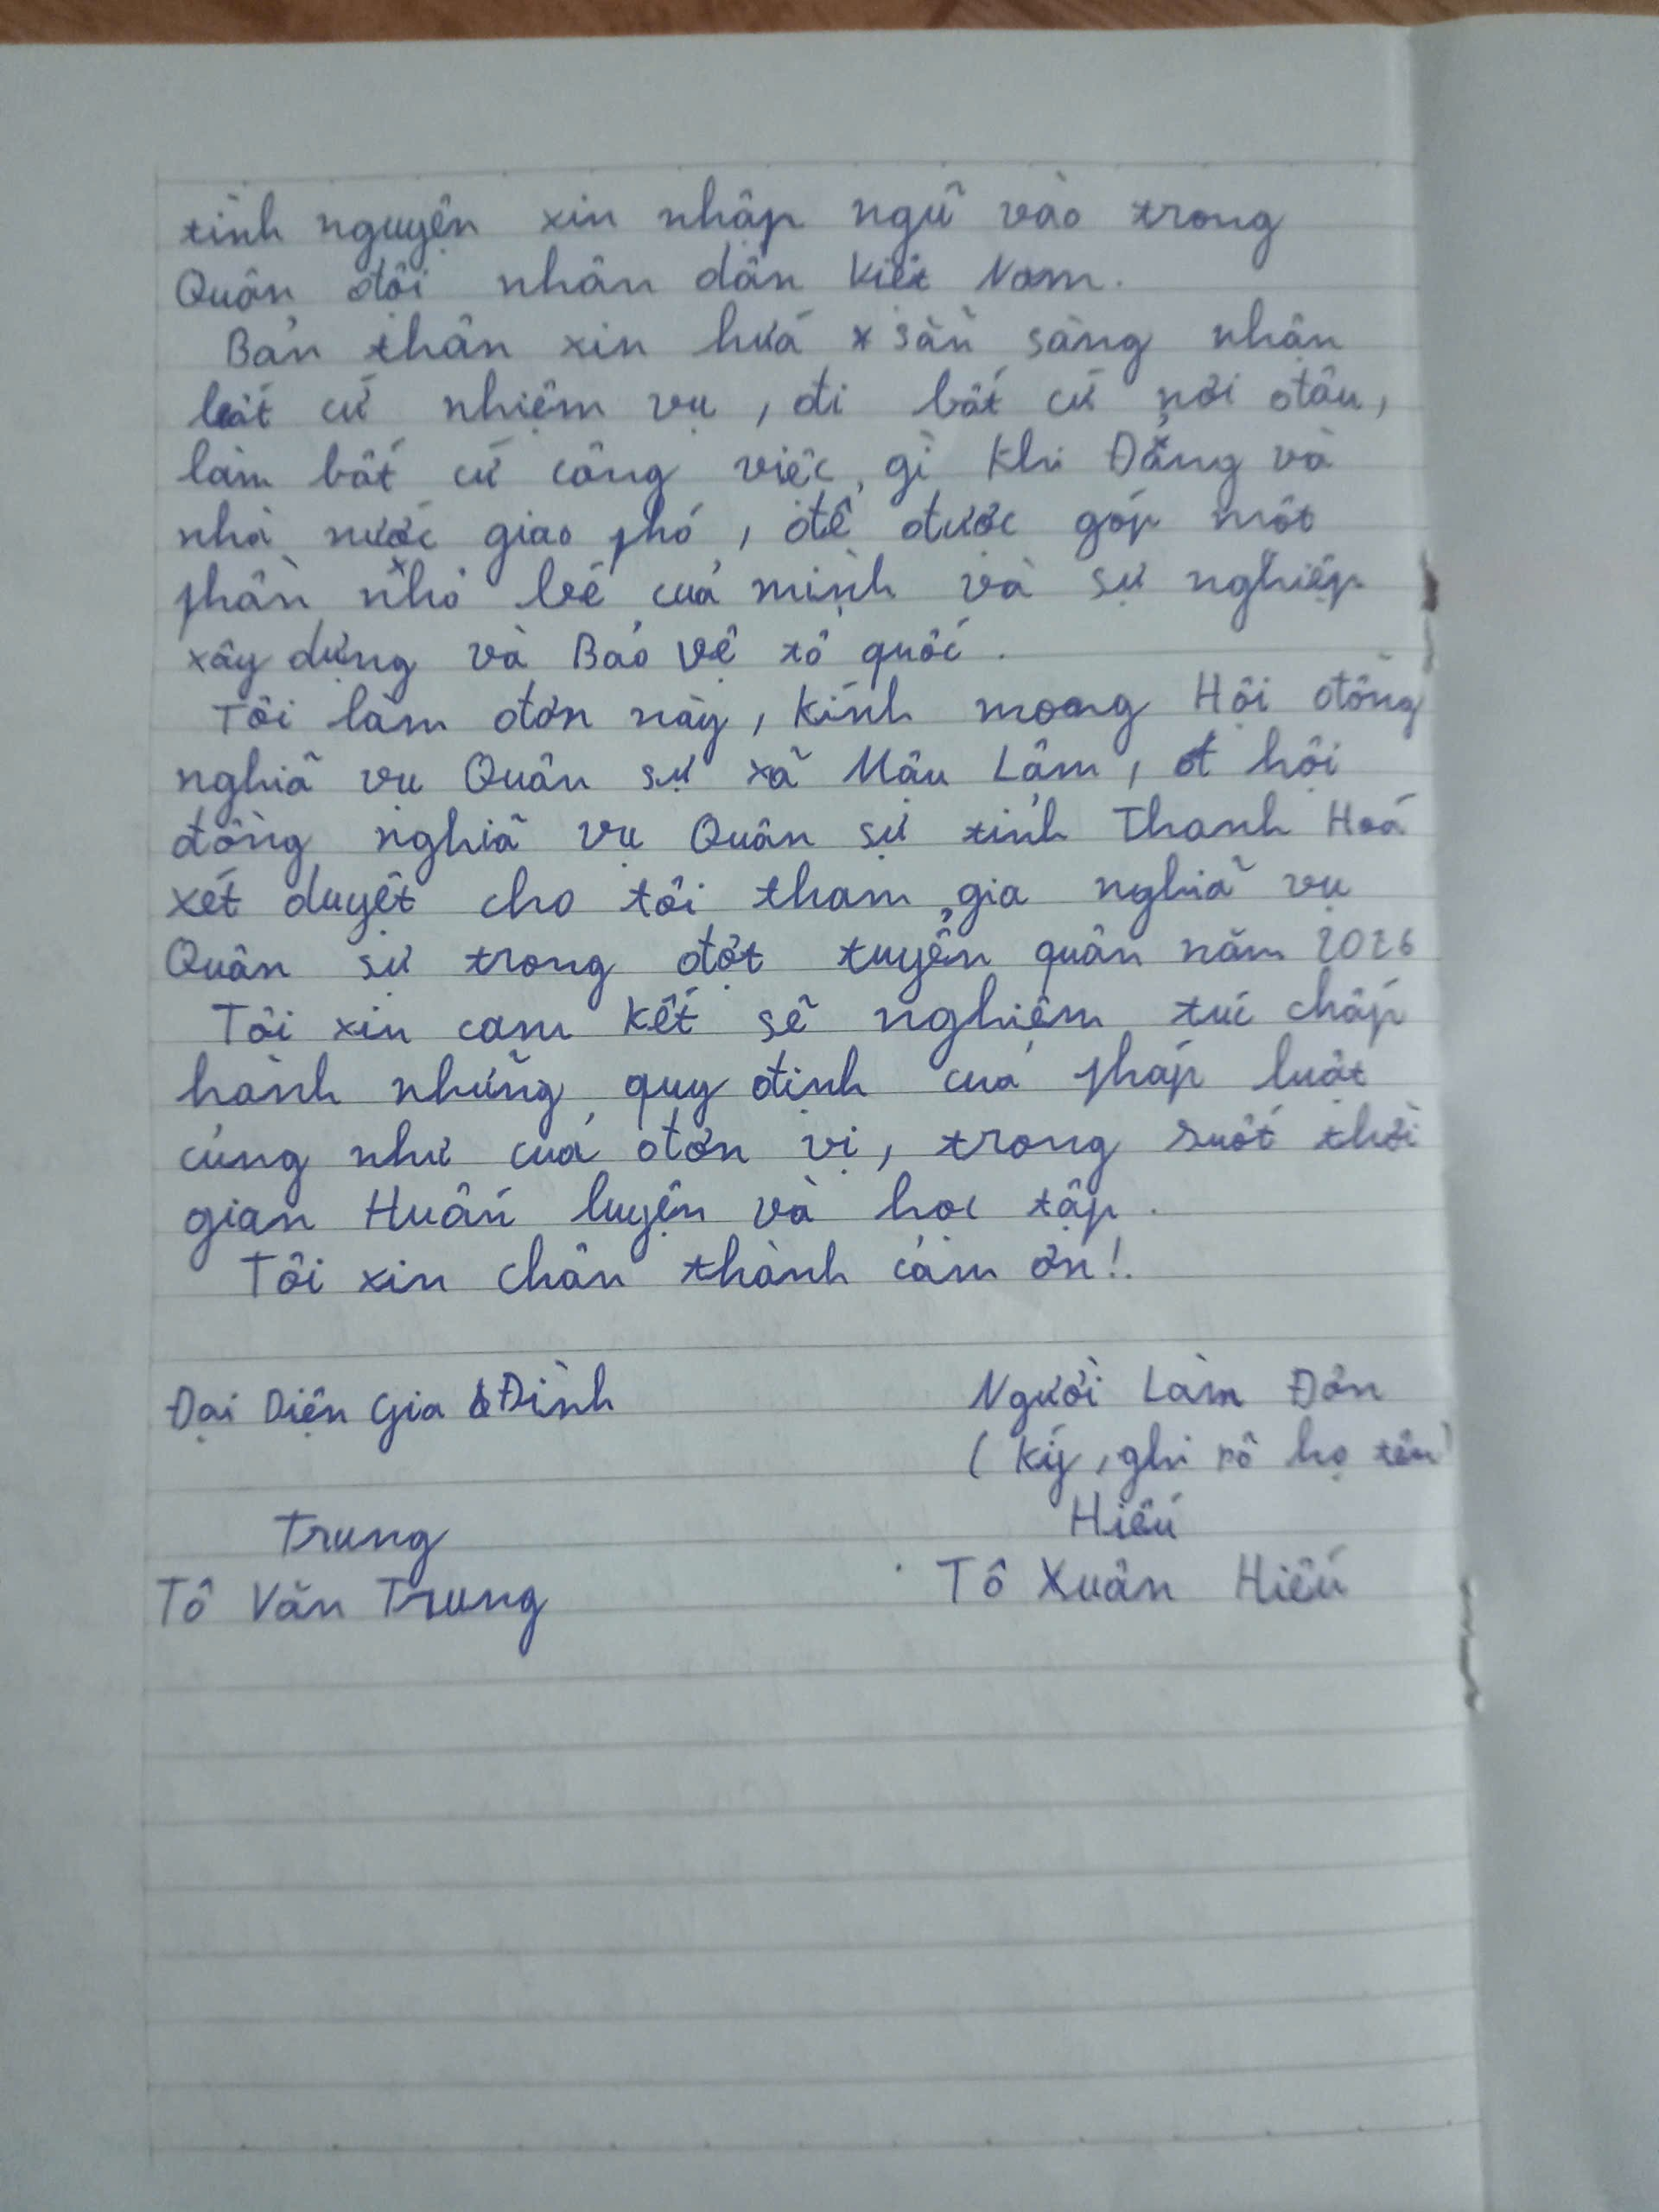 tình nguyện xin nhập ngũ vào trong
Quân đội nhân dân Việt Nam.
Bản thân xin hứa sẵn sàng nhận
bất cứ nhiệm vụ, đi bất cứ nơi đâu,
làm bất cứ công việc gì khi Đảng và
nhà nước giao phó, để được góp một
phần nhỏ bé của mình và sự nghiệp
xây dựng và Bảo vệ tổ quốc.
Tôi làm đơn này, kính mong Hội đồng
nghĩã vụ Quân sự xã Mậu Lâm, hội
đồng nghĩã vụ Quân sự tỉnh Thanh Hoá
xét duyệt cho tôi tham gia nghĩã vụ
Quân sự trong đợt tuyển quân năm 2026
Tôi xin cam kết sẽ nghiêm túc chấp
hành những quy định của pháp luật
cũng như của đơn vị, trong suốt thời
gian Huấn luyện và học tập.
Tôi xin chân thành cảm ơn!.
Đại Diện Gia Đình Người Làm Đơn
(ký, ghi rõ họ tên)
Trung Hiếu
Tô Văn Trung Tô Xuân Hiếu